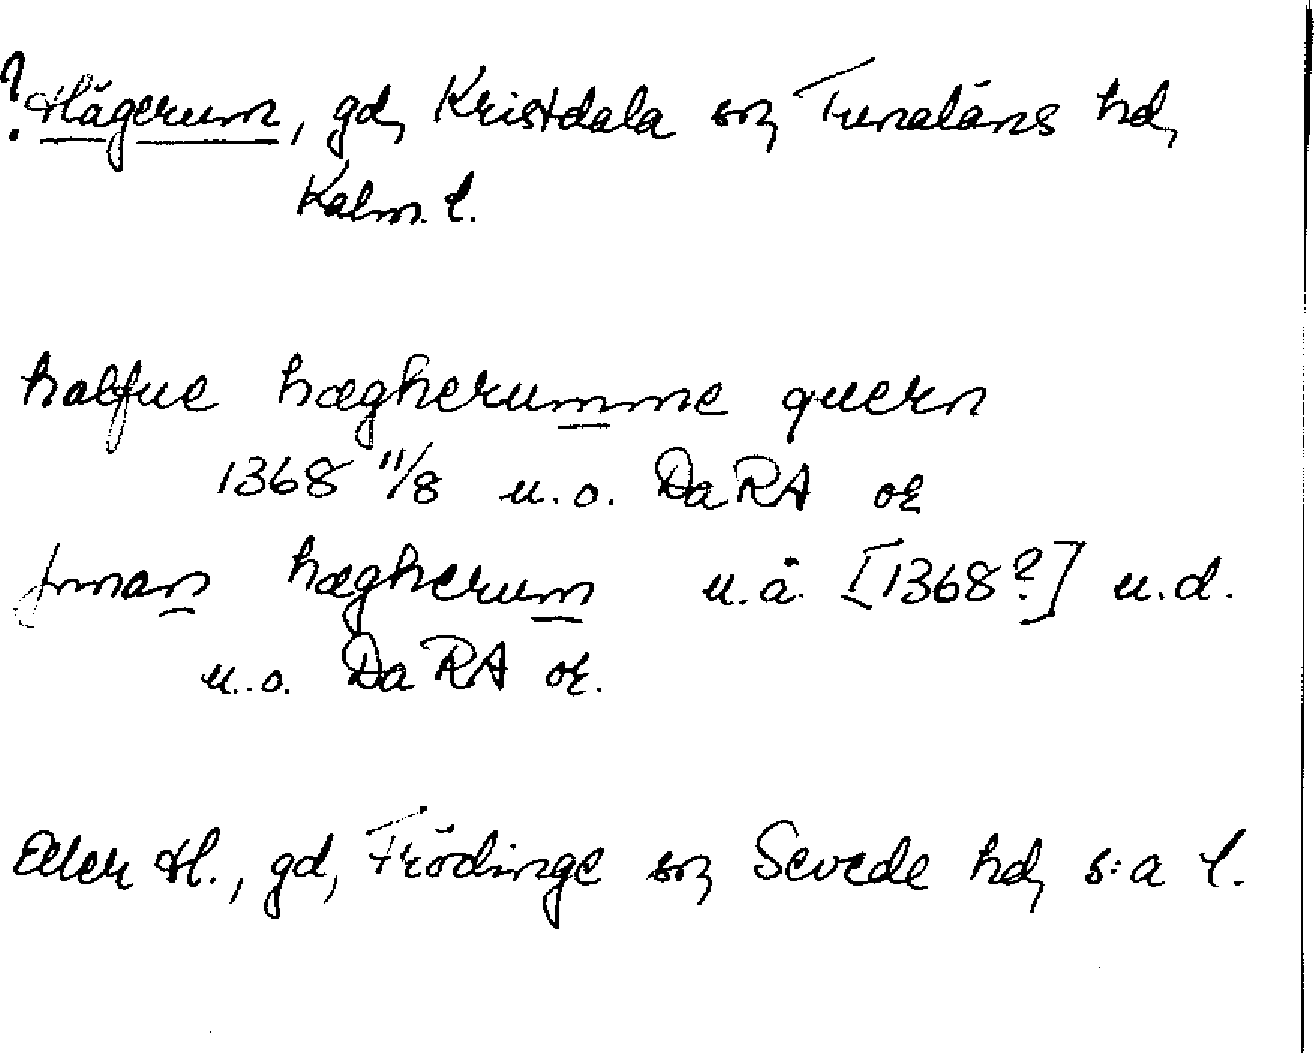 ? Hägerum, gd, Kristdala sn, Tunaläns hd,
Kalm. l.
halfue hægherumme quern
1368 11/8 u.o. DaRA or
jnnan hægherum u.å. [1368?] u.d.
u.o. DaRA or.
Eller H., gd, Frödinge sn, Sevede hd, s:a l.